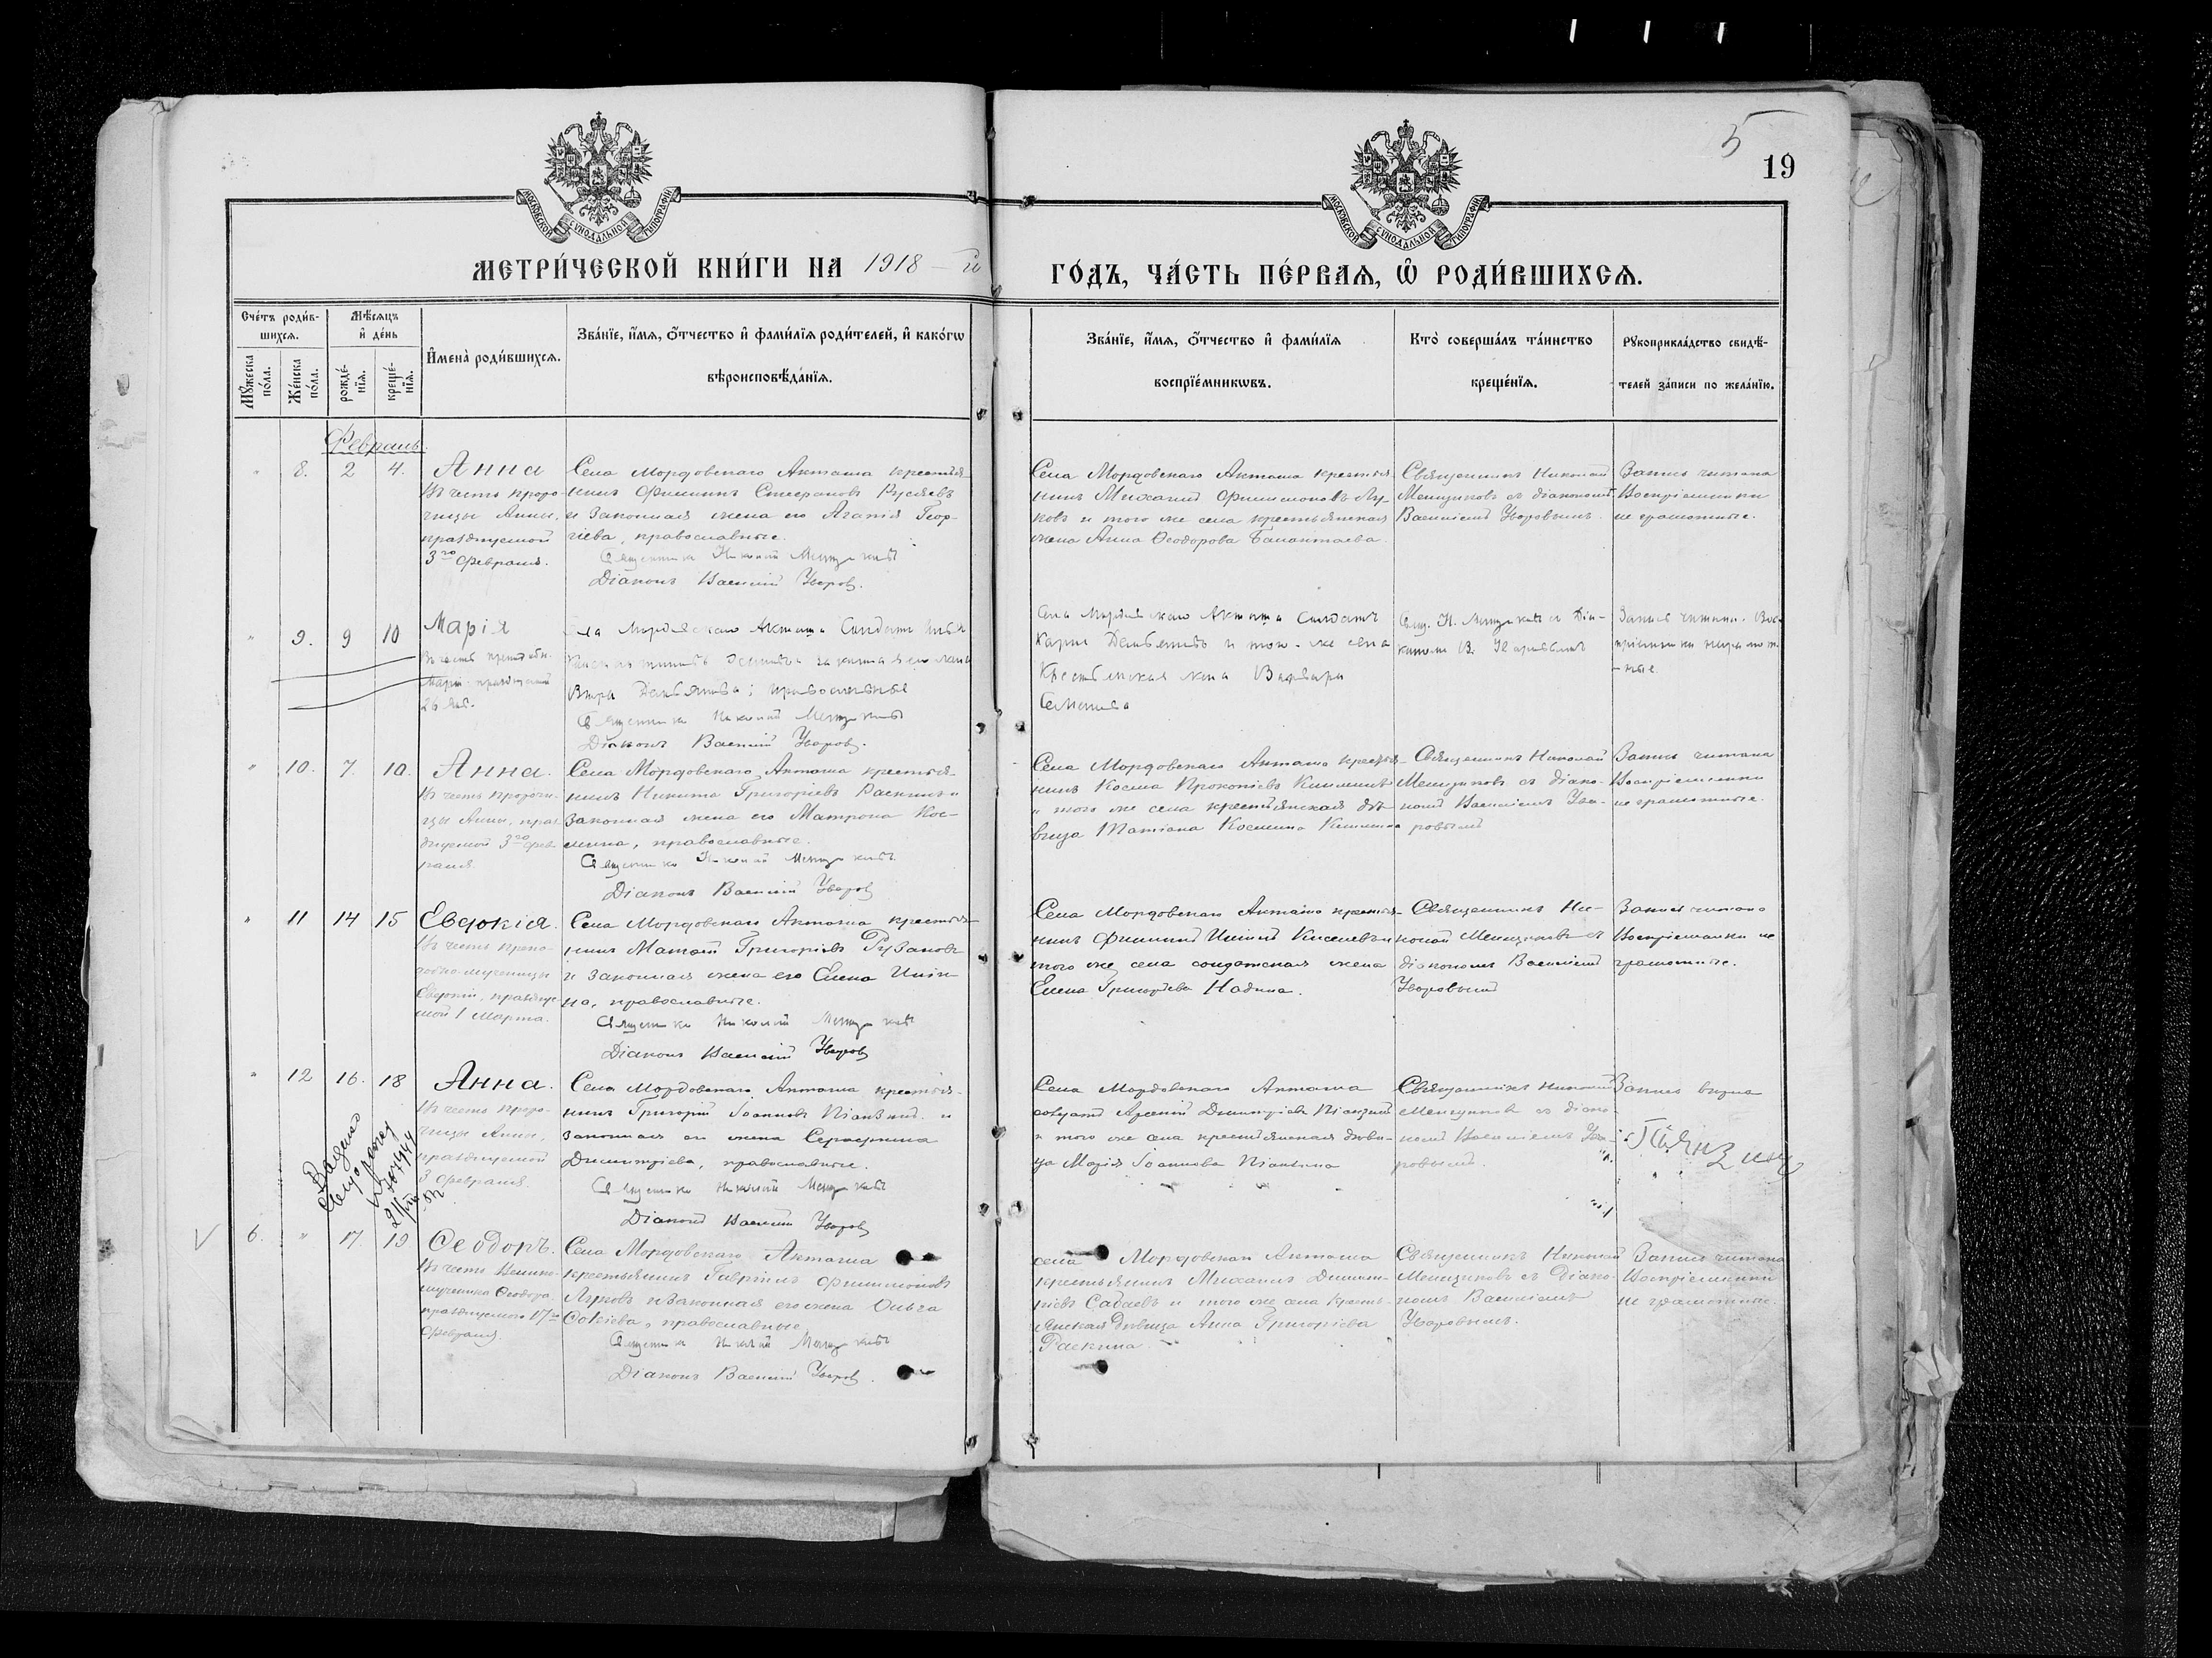 5
19
МОСКОВСКОЙ СѴНОДАЛЬНОЙ ТИПОГРАФІИ
МОСКОВСКОЙ СѴНОДАЛЬНОЙ ТИПОГРАФІИ
МЕТРИ́ЧЕСКОЙ КНИ́ГИ НА 1918 - й
ГО́ДЪ, ЧА́СТЬ ПЕ́РВАѦ, Ѽ РОДИ́ВШИХСѦ.
Сче́тъ роди́в-
шихсѧ.
Мѹ́жеска по́ла.
Же́нска по́ла.
Мѣ́сѧцъ и҆ де́нь
рожде́-нїѧ.
креще́-нїѧ.
И҆мена̀ роди́вшихсѧ.
Зва́нїе, и҆́мѧ, ѻ҆́тчество и҆ фами́лїѧ роди́телей, и҆ како́гѡ
вѣроисповѣ́данїѧ.
Зва́нїе, и҆́мѧ, ѻ҆́тчество и҆ фами́лїѧ
воспрїе́мникѡвъ.
Кто̀ соверша́лъ та́инство
креще́нїѧ.
Рꙋкоприкла́дство свидѣ́-
телей за́писи по жела́нїю.
Февраль.
" 8. 2 4.
Анна
Въ честь проро-
чицы Анны,
празднуемой
3го февраля.
Села Мордовскаго Акташа крестья-
нинъ Филиппъ Стефановъ
и законная жена его Агапія Геор-
гіева, православные.
Священникъ Николай
Діаконъ Василій Уваровъ.
Села Мордовскаго Акташа крестья-
нинъ Михаилъ Филимоновъ Лу-
ковъ и того же села крестьянская
жена Анна Ѳеодорова
Священникъ Николай
съ діакономъ
Василіемъ Уваровымъ.
Запись читана
Воспріемники
не грамотные.
" 9. 9 10
Марія
Въ честь
26 Янв.
Села Мордовскаго Акташа Солдатъ
законная его жена
православные
Священникъ Николай
Діаконъ Василій Уваровъ.
Села Мордовскаго Акташа Солдатъ
и того же села
Крестьянская жена Варвара
Семенова
Свящ. Н. и Діа-
кономъ В. Уваровымъ
Запись читана. Вос-
пріемники неграмот-
- ные.
" 10. 7. 10.
Анна.
Въ честь пророчи-
цы Анны, праз-
днуемой 3го фев-
раля.
Села Мордовскаго Акташа крестья-
нинъ Никита Григорьевъ Раскинъ и
законная жена его Матрона Кос-
мина, православные.
Священникъ Николай
Діаконъ Василій Уваровъ
Села Мордовскаго Акташа крестья-
нинъ Косма Прокопіевъ
и того же села крестьянская дѣ-
вица Татіана Космина
Священникъ Николай
съ діако-
номъ Василіемъ Ува-
ровымъ
Запись читана
Воспріемники
не грамотные.
" 11 14 15
Евдокія.
Въ честь препо-
добно-мученицы
Евдокіи, празднуе-
мой 1 Марта.
Села Мордовскаго Акташа крестья-
нинъ Матвѣй Григорьевъ Рузановъ
и законная жена его Елена
на, православные.
Священникъ Николай
Діаконъ Василій Уваровъ
Села Мордовскаго Акташа крестья-
нинъ Филиппъ Киселевъ и
того же села солдатская жена
Елена Григорьева Надина.
Священникъ Ни-
колай съ
діакономъ Василіемъ
Уваровымъ
Запись читана
Воспріемники не
грамотные.
" 12 16. 18
Анна.
Въ честь проро-
чицы Анны,
празднуемой
3 февраля.
Села Мордовскаго Акташа крестья-
нинъ Григорій Іоанновъ Піанзинъ и
законная его жена Серафима
Димитріева, православные.
Священникъ Николай
Діаконъ Василій Уваровъ
Села Мордовскаго Акташа
солдатъ Арсеній Димитріевъ Піанзинъ
и того же села крестьянская дѣви-
ца Марія Іоаннова Піанзина
Священникъ Николай
съ діако-
номъ Василіемъ Ува-
ровымъ.
Запись
Пьянзинъ
6. " 17. 19
Ѳеодоръ.
Въ честь Велико-
мученика Ѳеодора,
празднуемаго 17го
Февраля.
Села Мордовскаго Акташа
крестьянинъ Гавріилъ Филимоновъ
Луковъ и законная его жена Ольга
православные.
Священникъ Николай
Діаконъ Василій Уваровъ.
села Мордовскаго Акташа
крестьянинъ Михаилъ Димит-
ріевъ Сабаевъ и того же села кресть-
янская дѣвица Анна Григоріева
Раскина.
Священникъ Николай
съ Діако-
номъ Василіемъ
Уваровымъ.
Запись читана
Воспріемники
не грамотные.